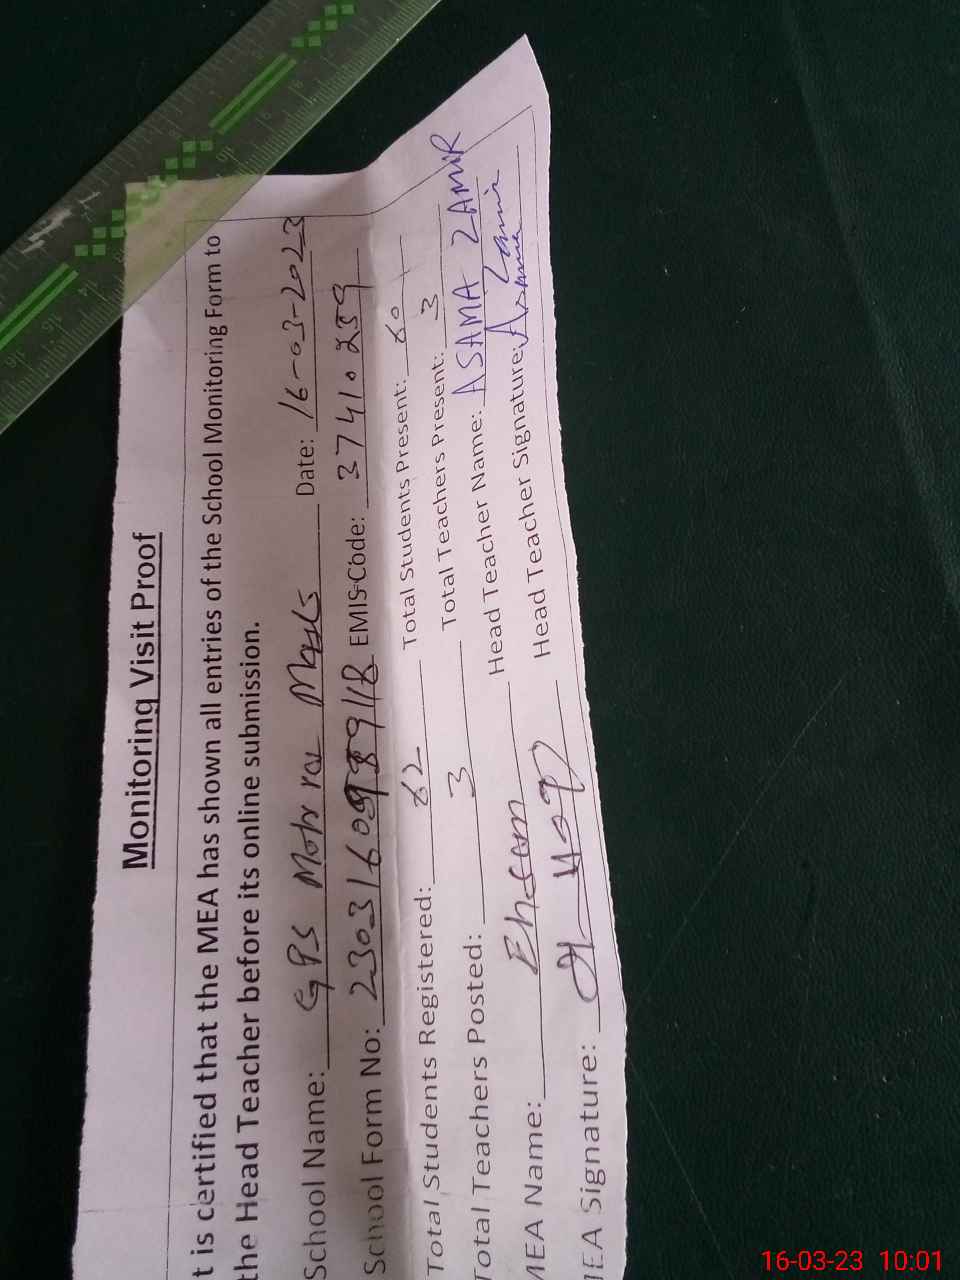 Monitoring Visit Proof
t is certified that the MEA has shown all entries of the School Monitoring Form to
the Head Teacher before its online submission.
School Name: GPS Mohra Date: 16-03-2023
School Form No: EMIS Code: 37410259
Total Students Registered: 62 Total Students Present: 60
Total Teachers Posted: 3 Total Teachers Present: 3
MEA Name: Head Teacher Name: ASAMA ZAMIR
MEA Signature: Head Teacher Signature: Asama Zamir
16-03-23 10:01